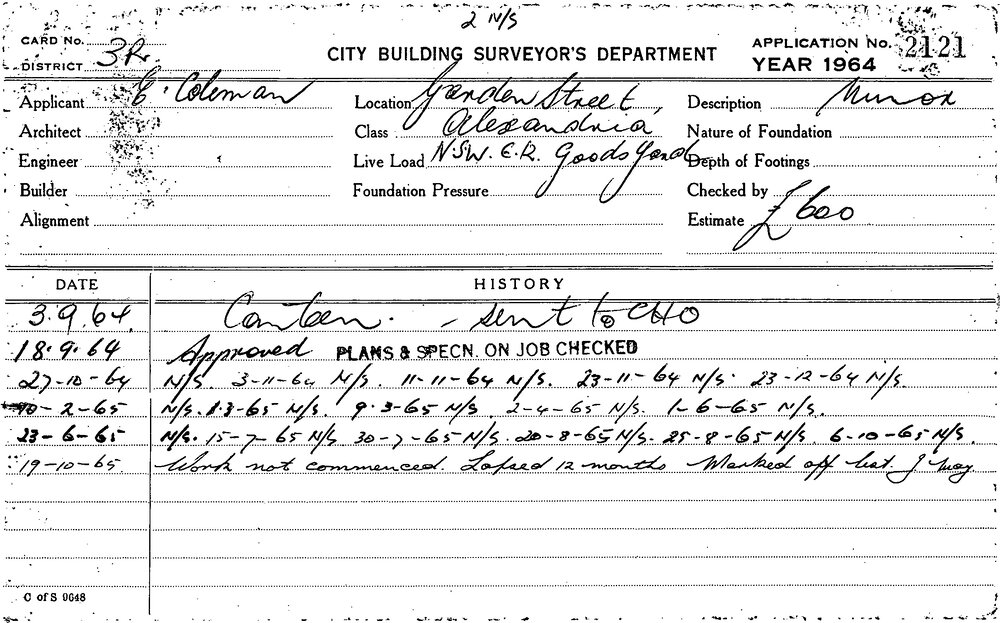 2 N/S
CARD No.
DISTRICT 3R
CITY BUILDING SURVEYOR'S DEPARTMENT
APPLICATION No. 2121
YEAR 1964
Applicant E. Coleman
Location Garden Street,
Description Minor
Architect
Class Alexandria
Nature of Foundation
Engineer
Live Load N.S.W. G.R. Goods Yard
Depth of Footings
Builder
Foundation Pressure
Checked by
Alignment
Estimate £600
DATE HISTORY
3.9.64. Canteen. - sent to CHO
18.9.64 Approved PLANS & SPECN. ON JOB CHECKED
27-10-64 N/S. 3-11-64 N/S. 11-11-64 N/S. 23-11-64 N/S. 23-12-64 N/S.
10-2-65 N/S. 1.3-65 N/S. 9.3-65 N/S. 2-4-65 N/S. 1-6-65 N/S.
23-6-65 N/S. 15-7-65 N/S 30-7-65 N/S. 20-8-65 N/S. 25-8-65 N/S. 6-10-65 N/S.
19-10-65 Work not commenced. Lapsed 12 months Marked off list. J May
C of S 9648